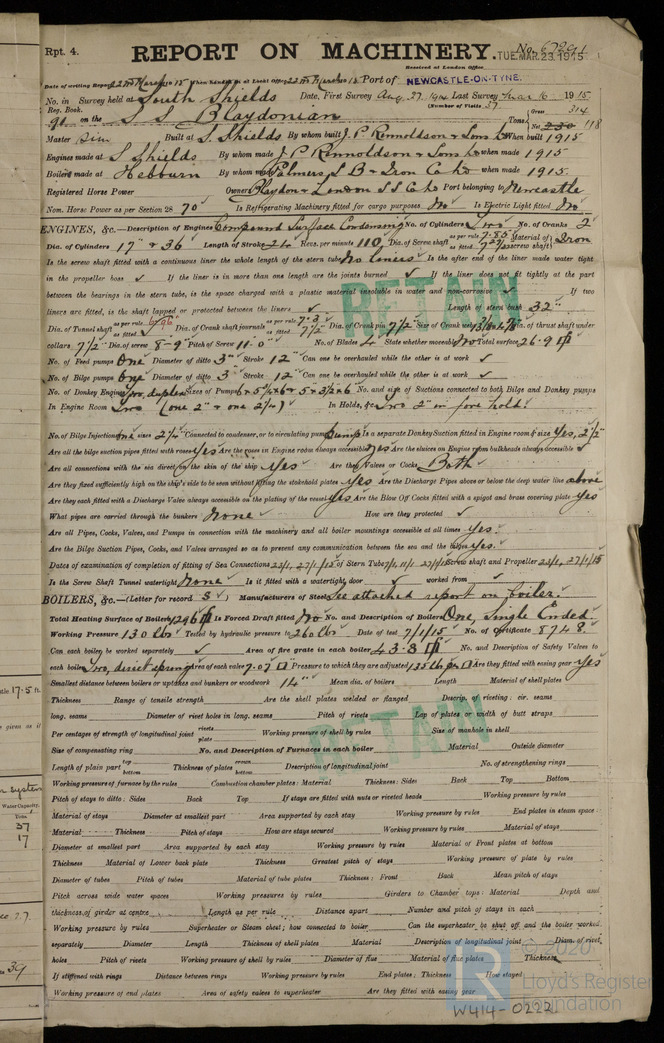 Rpt. 4.
REPORT ON MACHINERY.
No. 67291
TUE. MAR. 23. 1915
Received at London Office
Date of writing Report 22nd March 1915 When handed in at Local Office 22nd March 1915 Port of NEWCASTLE-ON-TYNE.
No. in Survey held at South Shields Date, First Survey Aug. 27. 1914 Last Survey Mar 16 1915
Reg. Book. (Number of Visits 37
91 on the S S Blaydonian Tons Gross 314 Net 230 118
Master Built at S. Shields By whom built J. P. Rennoldson & Sons Ld When built 1915
Engines made at S Shields By whom made J P Rennoldson & Sons Ld when made 1915
Boilers made at Hebburn By whom made Palmers S B & Iron Co Ld when made 1915.
Registered Horse Power Owners Blaydon & London S S Co Ld Port belonging to Newcastle
Nom. Horse Power as per Section 28 70 Is Refrigerating Machinery fitted for cargo purposes No Is Electric Light fitted No
ENGINES, &c.—Description of Engines Compound Surface Condensing No. of Cylinders Two No. of Cranks 2
Dia. of Cylinders 17" & 36 Length of Stroke 24 Revs. per minute 110 Dia. of Screw shaft as per rule 7.85 as fitted Material of screw shaft Iron
Is the screw shaft fitted with a continuous liner the whole length of the stern tube No liners Is the after end of the liner made water tight
in the propeller boss ✓ If the liner is in more than one length are the joints burned ✓ If the liner does not fit tightly at the part
between the bearings in the stern tube, is the space charged with a plastic material insoluble in water and non-corrosive ✓ If two
liners are fitted, is the shaft lapped or protected between the liners ✓ Length of stern bush 32"
Dia. of Tunnel shaft as per rule 6.96 as fitted ✓ Dia. of Crank shaft journals as per rule 7.3 as fitted 7 1/2 Dia. of Crank pin 7 1/2 Size of Crank webs Dia. of thrust shaft under
collars 7 1/2 Dia. of screw 8-9 Pitch of Screw 11.0 No. of Blades 4 State whether moveable No Total surface 26.9
No. of Feed pumps One Diameter of ditto 3" Stroke 12" Can one be overhauled while the other is at work ✓
No. of Bilge pumps One Diameter of ditto 3" Stroke 12" Can one be overhauled while the other is at work ✓
No. of Donkey Engines Two, duplex Sizes of Pumps No. and size of Suctions connected to both Bilge and Donkey pumps
In Engine Room Two (one 2" & one 2 1/4) In Holds, &c Two 2" in fore hold.
No. of Bilge Injections One sizes 2 1/4" Connected to condenser, or to circulating pump Pump Is a separate Donkey Suction fitted in Engine room & size Yes, 2 1/2"
Are all the bilge suction pipes fitted with roses Yes Are the roses in Engine room always accessible Yes Are the sluices on Engine room bulkheads always accessible ✓
Are all connections with the sea direct on the skin of the ship Yes Are they Valves or Cocks Both
Are they fixed sufficiently high on the ship's side to be seen without lifting the stokehold plates Yes Are the Discharge Pipes above or below the deep water line above
Are they each fitted with a Discharge Valve always accessible on the plating of the vessel Yes Are the Blow Off Cocks fitted with a spigot and brass covering plate Yes
What pipes are carried through the bunkers None How are they protected ✓
Are all Pipes, Cocks, Valves, and Pumps in connection with the machinery and all boiler mountings accessible at all times Yes.
Are the Bilge Suction Pipes, Cocks, and Valves arranged so as to prevent any communication between the sea and the bilges Yes.
Dates of examination of completion of fitting of Sea Connections 23/1, 27/1/15 of Stern Tube 7/1, 11/1 27/1/15 Screw shaft and Propeller 23/1, 27/1/15
Is the Screw Shaft Tunnel watertight None Is it fitted with a watertight door ✓ worked from ✓
BOILERS, &c.—(Letter for record S) Manufacturers of Steel See attached report on boiler.
Total Heating Surface of Boilers 1296 Is Forced Draft fitted No No. and Description of Boilers One, Single Ended.
Working Pressure 130 lbs Tested by hydraulic pressure to 260 lbs Date of test 7/1/15 No. of Certificate 8748.
Can each boiler be worked separately ✓ Area of fire grate in each boiler 43.3 No. and Description of Safety Valves to
each boiler Two, direct spring Area of each valve 7.07 Pressure to which they are adjusted 135 lbs Are they fitted with easing gear Yes
Smallest distance between boilers or uptakes and bunkers or woodwork 14" Mean dia. of boilers Length Material of shell plates
Thickness Range of tensile strength Are the shell plates welded or flanged Descrip. of riveting: cir. seams
long. seams Diameter of rivet holes in long. seams Pitch of rivets Lap of plates or width of butt straps
Per centages of strength of longitudinal joint rivets plate Working pressure of shell by rules Size of manhole in shell
Size of compensating ring No. and Description of Furnaces in each boiler Material Outside diameter
Length of plain part top bottom Thickness of plates crown bottom Description of longitudinal joint No. of strengthening rings
Working pressure of furnace by the rules Combustion chamber plates: Material Thickness: Sides Back Top Bottom
Pitch of stays to ditto: Sides Back Top If stays are fitted with nuts or riveted heads Working pressure by rules
Material of stays Diameter at smallest part Area supported by each stay Working pressure by rules End plates in steam space:
Material Thickness Pitch of stays How are stays secured Working pressure by rules Material of stays
Diameter at smallest part Area supported by each stay Working pressure by rules Material of Front plates at bottom
Thickness Material of Lower back plate Thickness Greatest pitch of stays Working pressure of plate by rules
Diameter of tubes Pitch of tubes Material of tube plates Thickness: Front Back Mean pitch of stays
Pitch across wide water spaces Working pressures by rules Girders to Chamber tops: Material Depth and
thickness of girder at centre Length as per rule Distance apart Number and pitch of stays in each
Working pressure by rules Superheater or Steam chest; how connected to boiler Can the superheater be shut off and the boiler worked
separately Diameter Length Thickness of shell plates Material Description of longitudinal joint Diam. of rivet
holes Pitch of rivets Working pressure of shell by rules Diameter of flue Material of flue plates Thickness
If stiffened with rings Distance between rings Working pressure by rules End plates: Thickness How stayed
Working pressure of end plates Area of safety valves to superheater Are they fitted with easing gear
RETAIN
RETAIN
© 2020
Lloyd's Register
Foundation
W414-0222